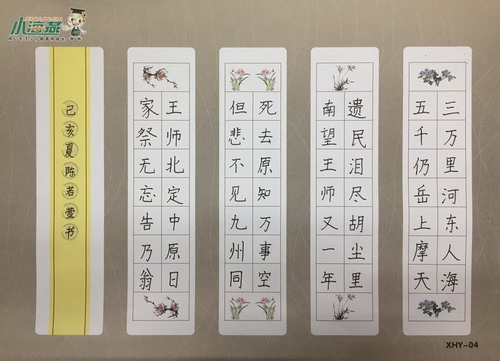 小海燕
三万里河东人海
五千仍岳上摩天
遗民泪尽胡尘里
南望王师又一年
死去原知万事空
但悲不见九州同
王师北定中原日
家祭无忘告乃翁
己亥夏陈若萱书
XHY-04